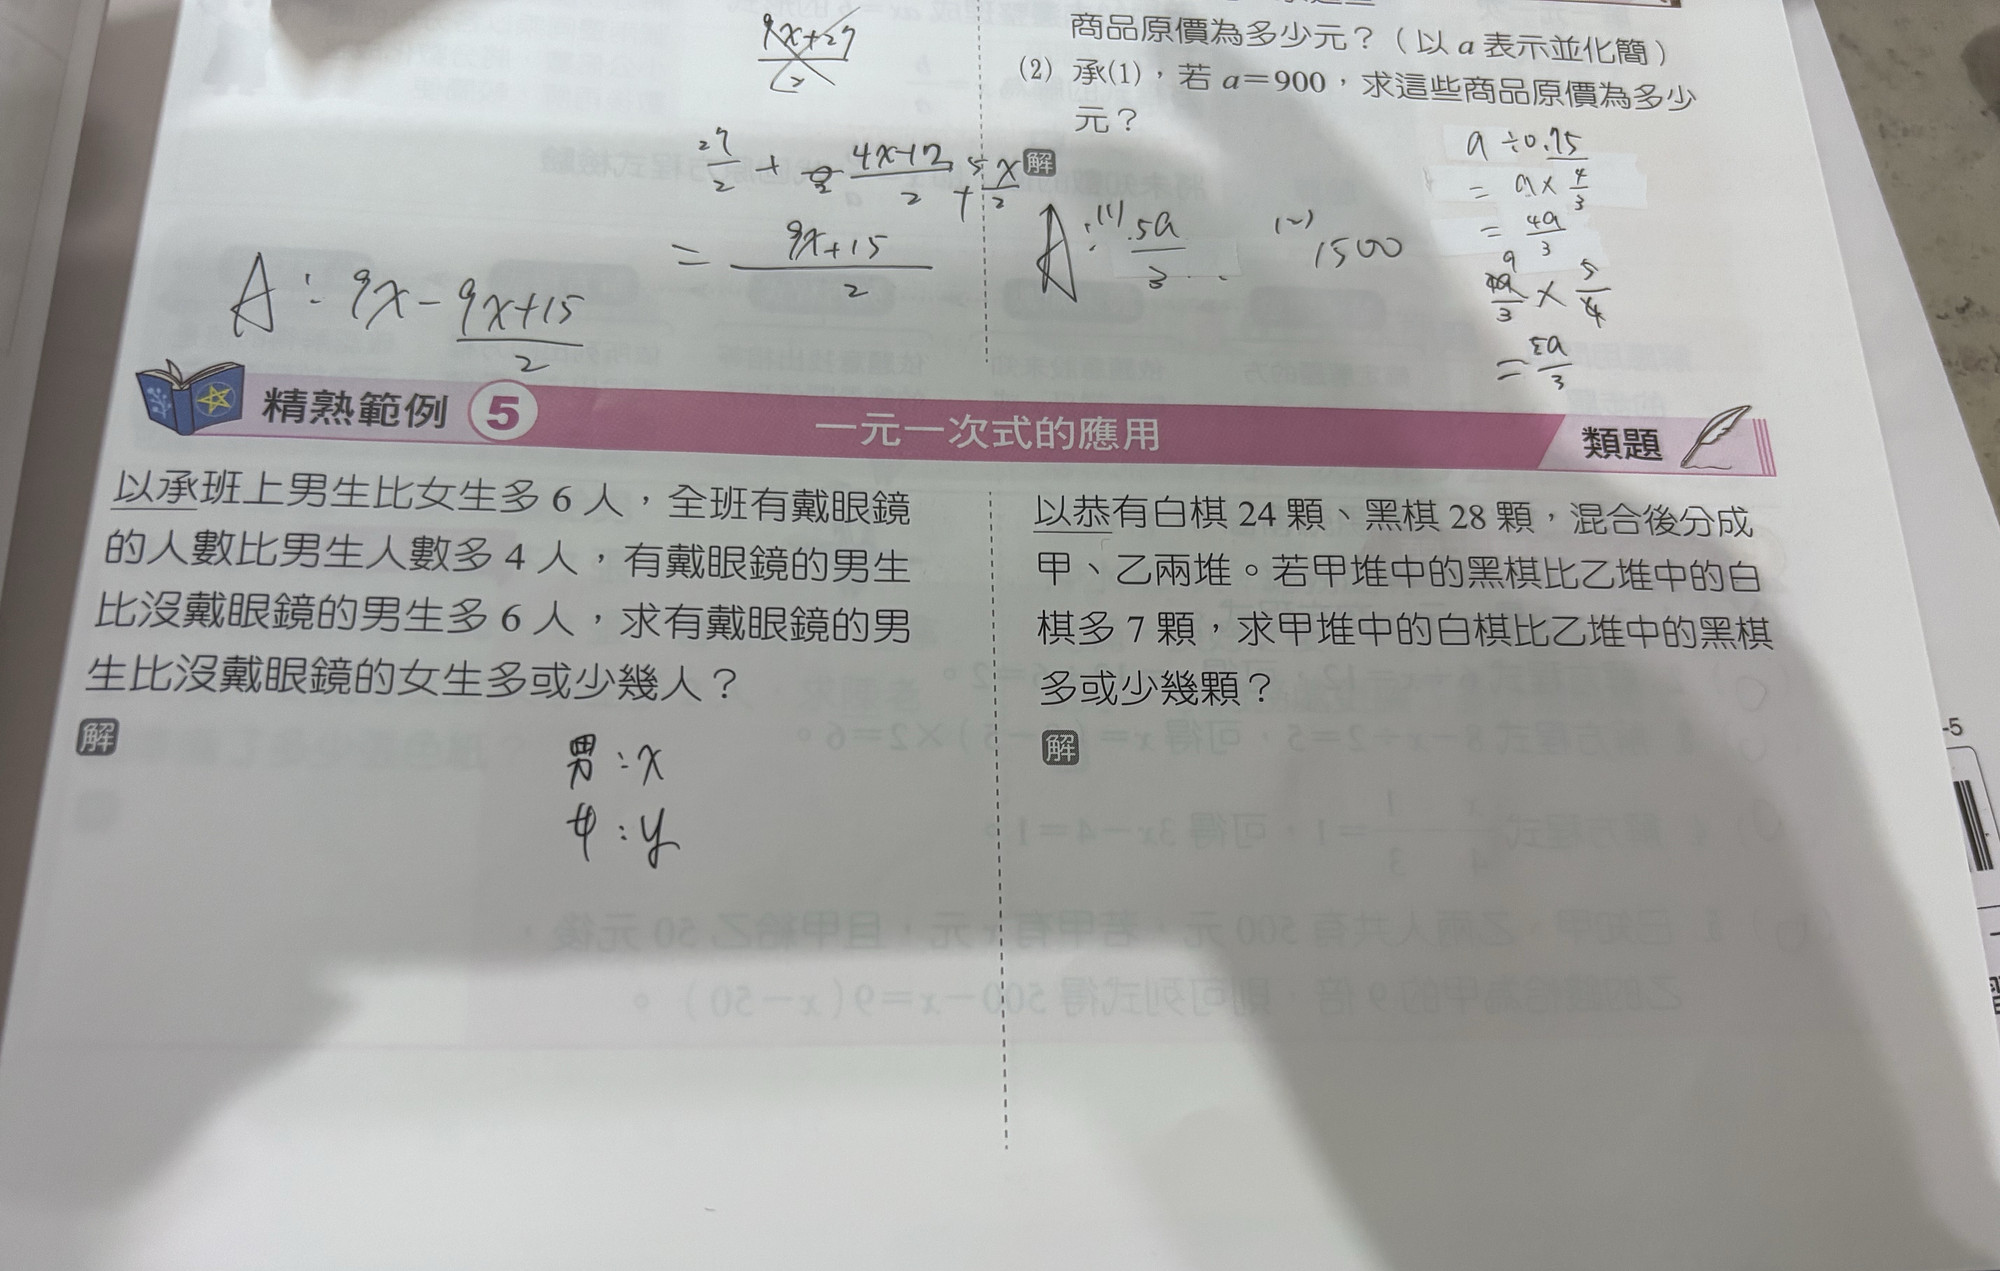 商品原價為多少元？（以 a 表示並化簡）
(2) 承(1)，若 a＝900，求這些商品原價為多少
元？
9x+27
2
27/2 + 4x-12/2 + 5x/2
= 9x+15/2
A：9x - 9x+15/2
解
A：(1) 5a/3 (2) 1500
a÷0.75
= a × 4/3
= 4a/3
4a/3 × 5/4
= 5a/3
精熟範例 5 一元一次式的應用 類題
以承班上男生比女生多 6 人，全班有戴眼鏡
的人數比男生人數多 4 人，有戴眼鏡的男生
比沒戴眼鏡的男生多 6 人，求有戴眼鏡的男
生比沒戴眼鏡的女生多或少幾人？
解
男：x
女：y
以恭有白棋 24 顆、黑棋 28 顆，混合後分成
甲、乙兩堆。若甲堆中的黑棋比乙堆中的白
棋多 7 顆，求甲堆中的白棋比乙堆中的黑棋
多或少幾顆？
解
-5